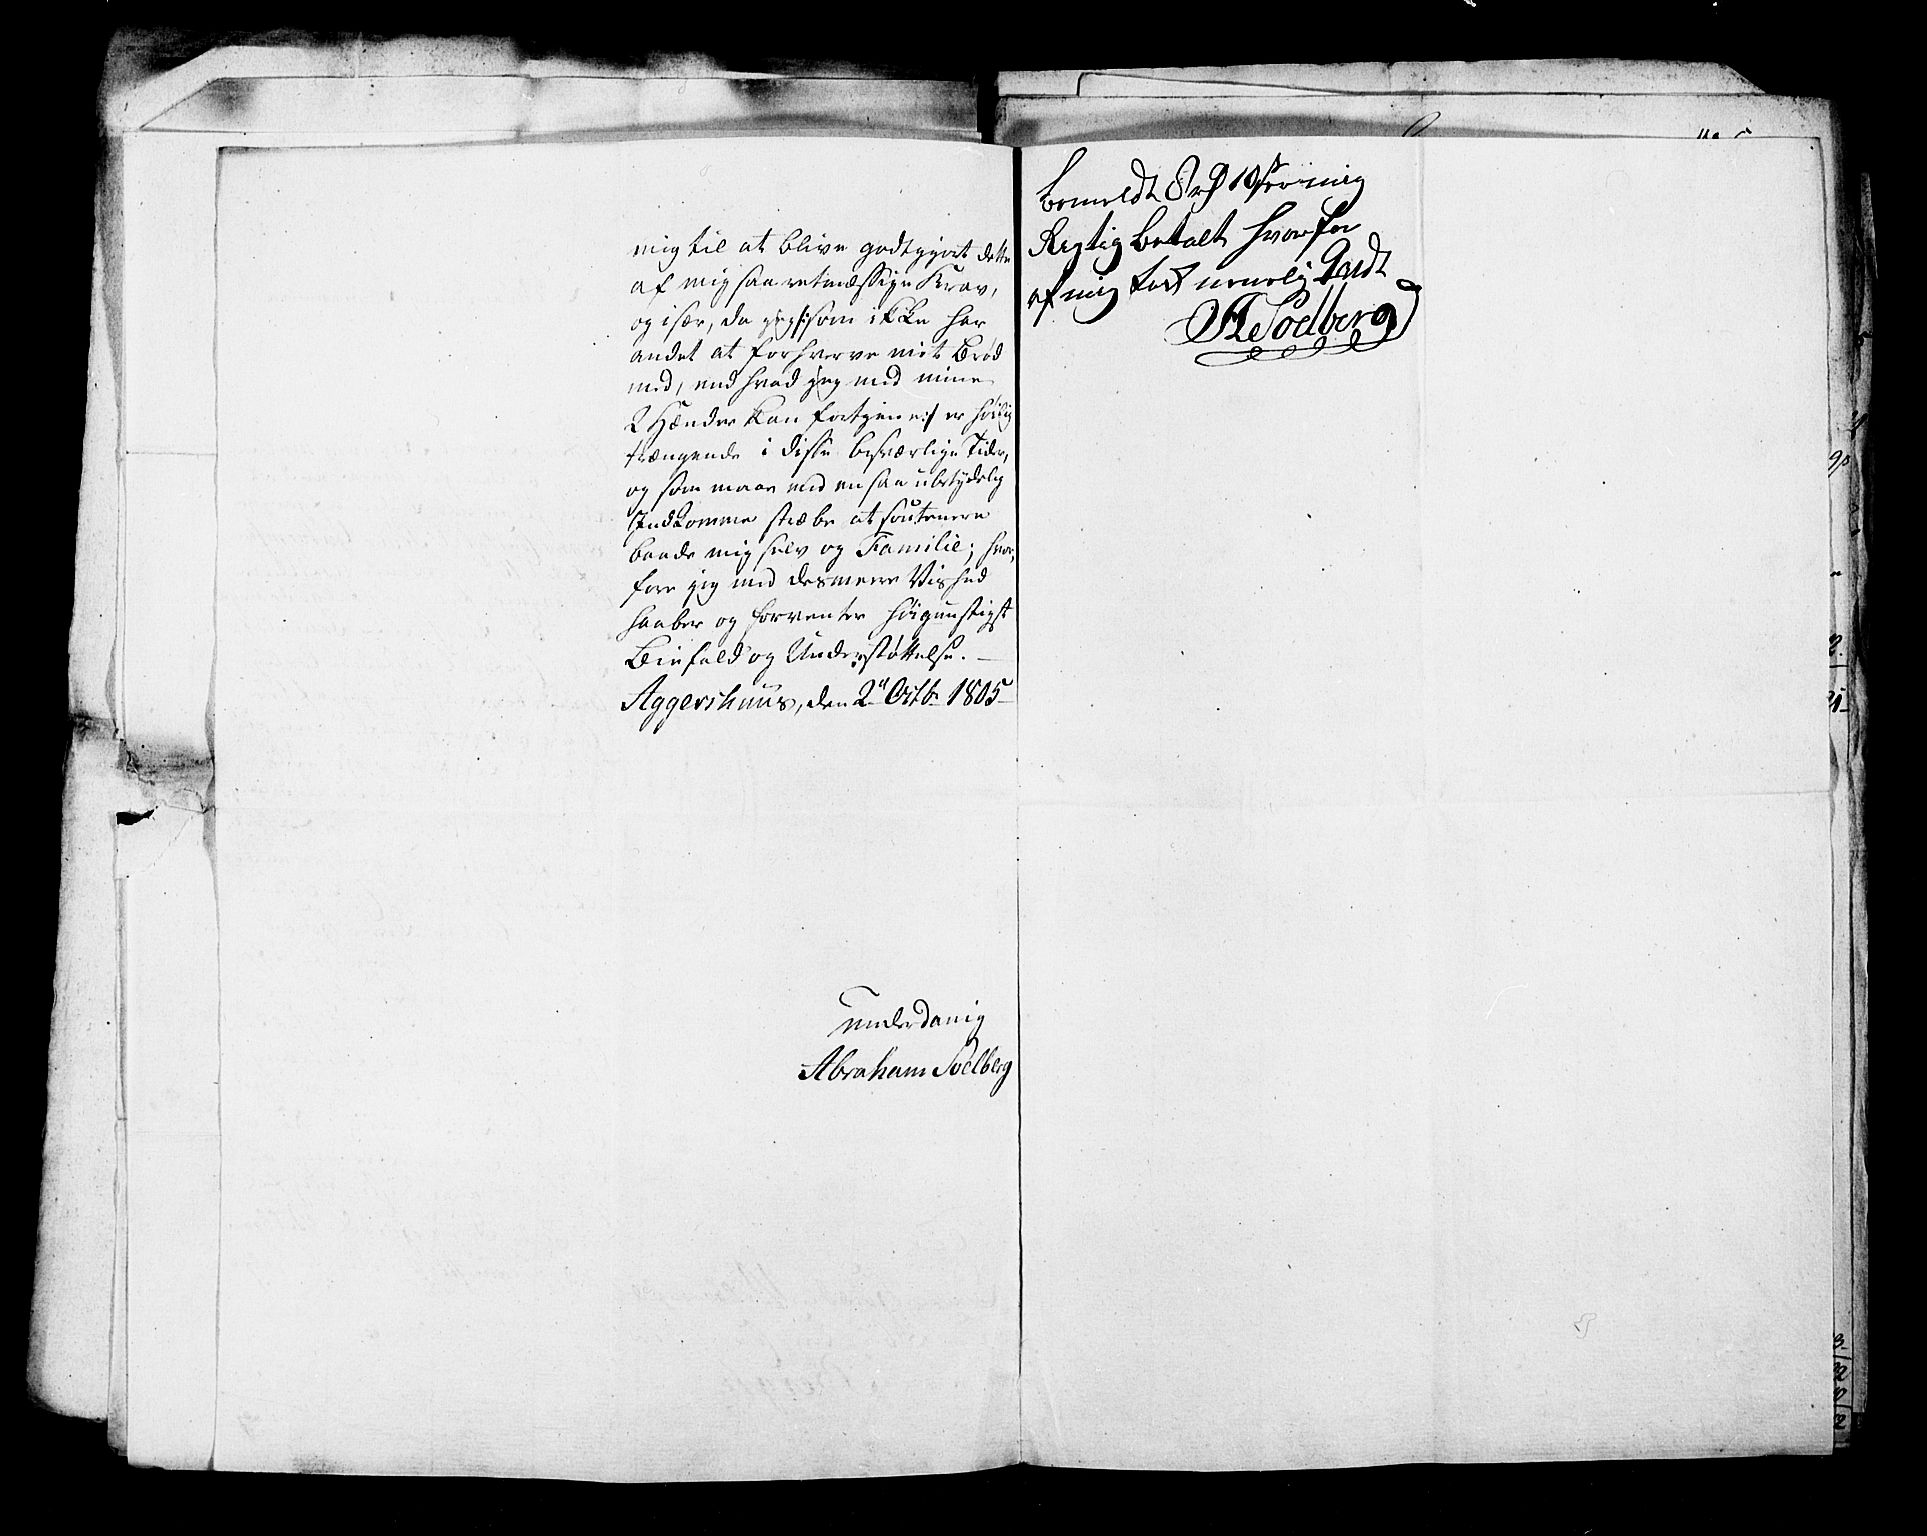 mig til at blive godtgjort dette
af mig saa retmæssige Krav,
og især, da jeg /: som ikke har
andet at forhverve mit Brød
med, end hvad jeg med mine
2 Hænder kan fortjene :/ er høilig
trængende i disse besværlige Tider,
og som maae med en saa ubetydelig
Indkomme stræbe at soutenere
baade mig selv og Familie; hvor,
fore jeg med desmere Vished
haaber og forventer høigunstigst
Biefald og Understøttelse. —
Aggershuus, den 2d Octb. 1805
underdanig
Abraham Soelberg
bemeldt 8 rd 10 s er mig
Rigtig betalt hvorfor
af mig
A Soelberg